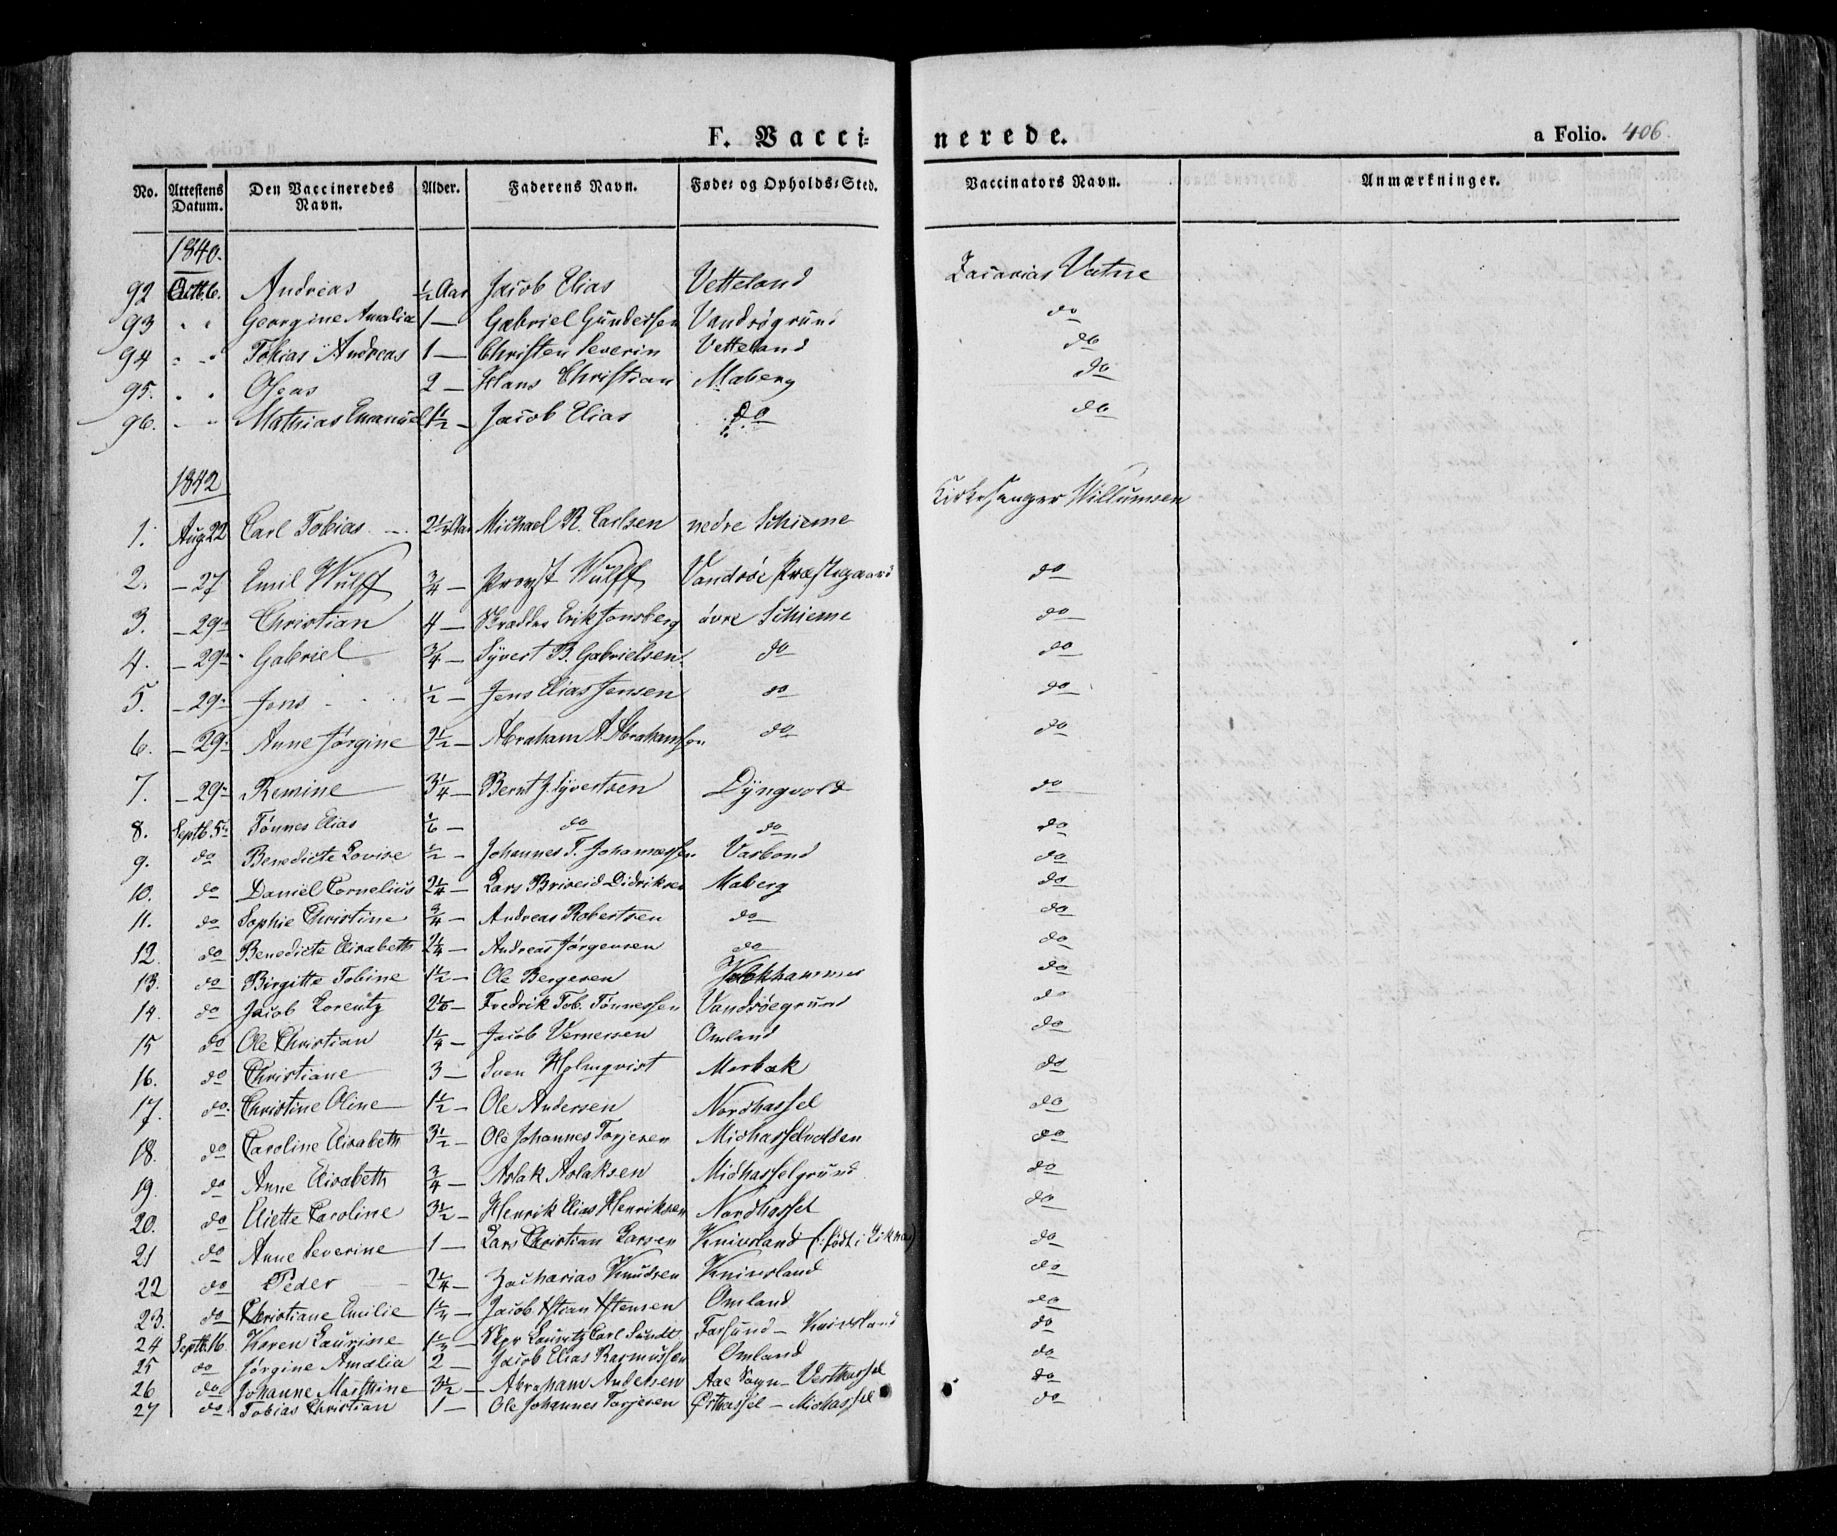 F. Vacci- nerede. a Folio. 406.
No. Attestens Datum. Den Vaccineredes Navn. Alder. Faderens Navn. Føde- og Opholds-Sted. Vaccinators Navn. Anmærkninger.
1840.
92 Octb. 6. Andreas ½ Aar Jacob Elias Vetteland Zacarias Vatne
93 " " Georgine Amalia 1 — Gabriel Gundersen Vandsøgrund do
94 " " Tobias Andreas 1 — Christen Severin Vetteland do
95. " " Oseas 2 — Hans Christian Maberg do
96. " " Mathias Emanuel 1½ — Jacob Elias do do
1842
1. Aug 22 Carl Tobias 2½ Aar Michael R. Carlsen nedre Schieme Kirkesanger Willumsen
2. — 27 Emil Wulff ¾ — Provst Wulff Vandsøe Præstegaard do
3. — 29 Christian 4 — Skrædder Erik Jonsberg øvre Schieme do
4. — 29 Gabriel ¾ — Syvert B. Gabrielsen do do
5. — 29 Jens ½ — Jens Elias Jensen do do
6. — 29 Anne Jørgine 2½ — Abraham A. Abrahamsen do do
7. — 29 Remine 3¼ — Bernt J. Syvertsen Dyngvold do
8. Septb. 5 Tønnes Elias 1/6 — do do do
9. do Benedicte Lovise ½ — Johannes T. Johannessen Vasbond do
10. do Daniel Cornelius 2¼ — Lars Briseid Didriksen Maberg do
11. do Sophie Christine ¾ — Andreas Robertsen do do
12. do Benedicte Elisabeth 2¼ — Andreas Jørgensen do do
13. do Birgitte Tobine 1½ — Ole Bergesen do
14. do Jacob Lorentz Fredrik Tob. Tønnessen Vandsøegrund do
15 do Ole Christian 1¼ — Jacob Vernersen Omland do
16. do Christiane 3 — Sven Holmqvist Morbæk do
17. do. Christine Oline 1½ — Ole Andersen Nordhassel do
18. do Caroline Elisabeth 3½ — Ole Johannes Torjesen Midhasselvolden do
19. do Anne Elisabeth ¾ — Aslak Aslaksen Midhasselgrund do
20. do Eliette Caroline 3½ — Henrik Elias Henriksen Nordhassel do
21 do Anne Severine 1 — Lars Christian Larsen Knivsland (: født i do
22 do Peder 2¼ — Zacharias Knudsen Knivsland do
23. do Christiane Emilie 1½ — Jacob Omland do
24 Septb. 16. Karen Laurine 1½ — Skpr Lauritz Carl Sundt Farsund — Knivsland do
25 do Jørgine Amalia 2 — Jacob Elias Rasmussen Omland do
26 do Johanne Marthine 3½ — Abraham Andersen Aae Sogn — Vesthassel do
27 do Tobias Christian 1 — Ole Johannes Torjesen Østhassel — Midhassel do